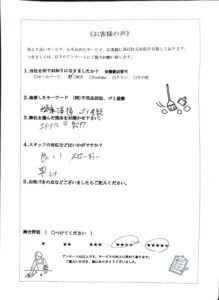 《お客様の声》
常により良いサービス、心を込めたサービス、お客様に喜ばれるお店を目指しております。
つきましては、以下のアンケートにご協力お願い致します。
1.当社を何でお知りになりましたか？ ※複数回答可
□ホームページ □ご紹介 □YouTube □チラシ □その他
2.検索したキーワード (例)不用品回収、ゴミ屋敷
ゴミ屋敷
3.弊社を選んだ理由をお聞かせ下さい。
4.スタッフの対応など良い点ですか？
良い スピーディー
早い
5.お気づきの点などございましたらご記入ください。
総合評価 ( ○つけてください )
★ ★★ ★★★ ★★★★ ★★★★★
アンケートは以上です。サービスの向上に努めて参ります。
ご協力いただき、誠にありがとうございました。